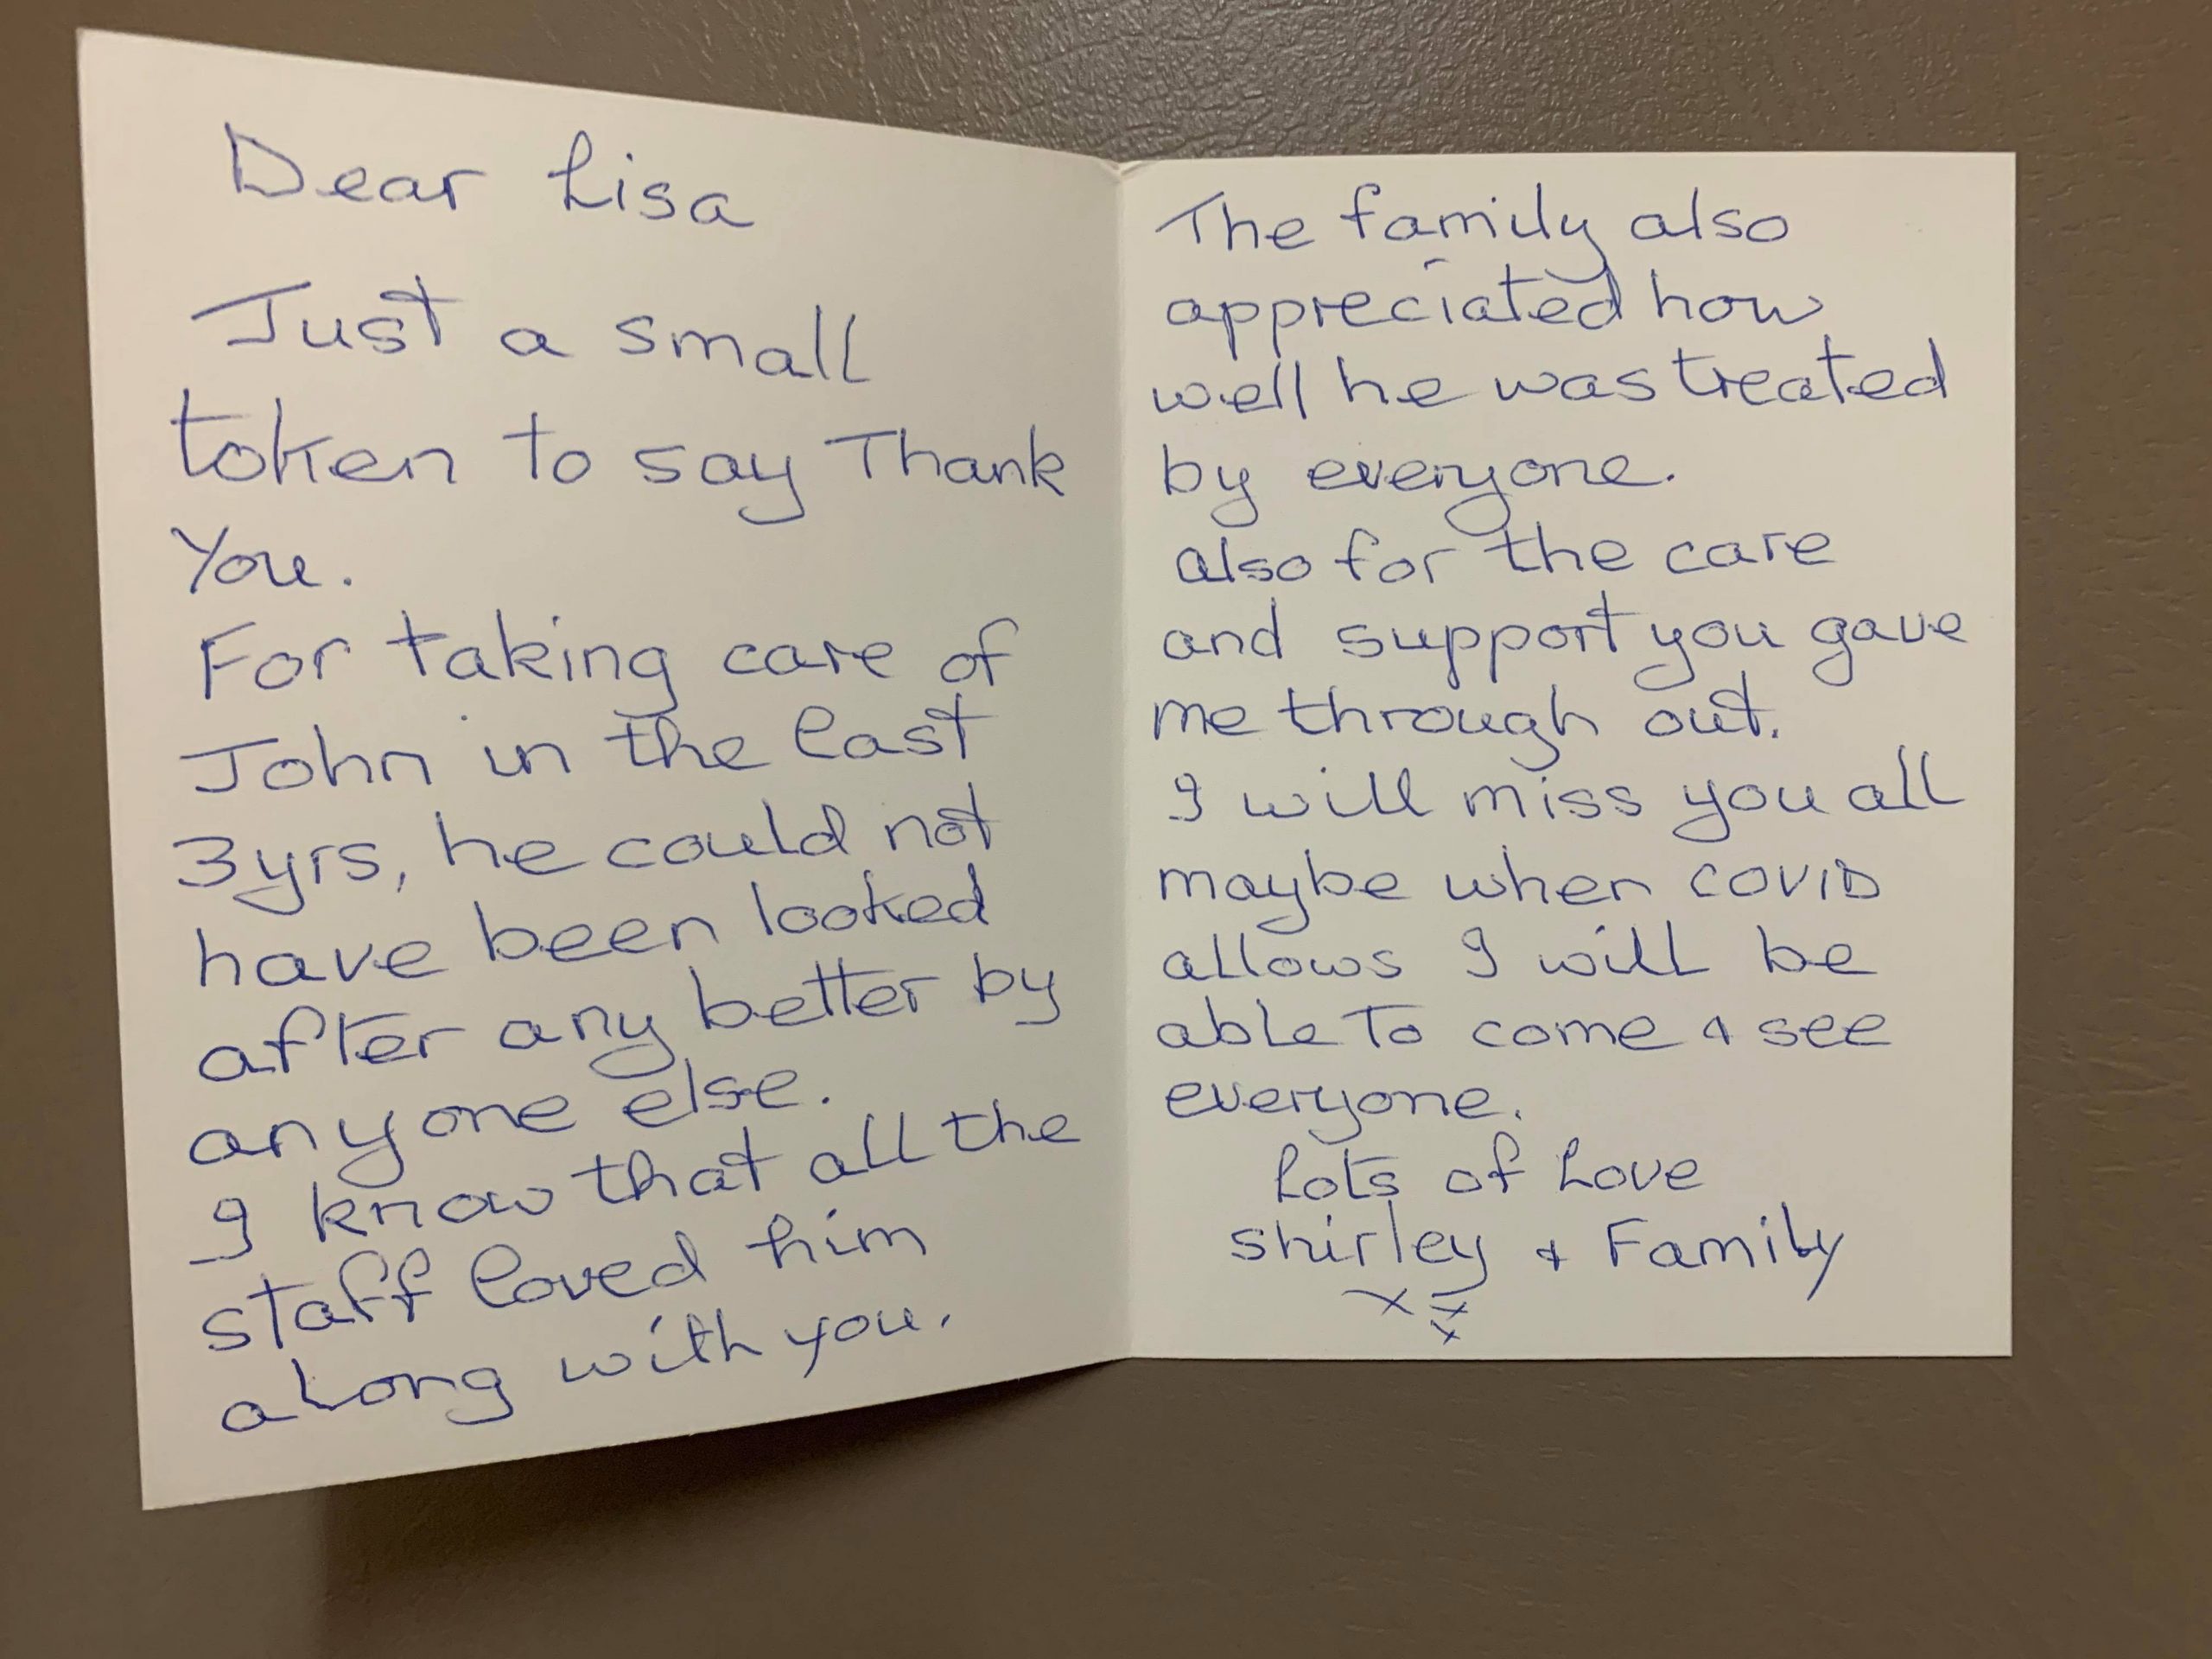 Dear Lisa
Just a small
token to say Thank
You.
For taking care of
John in the last
3yrs, he could not
have been looked
after any better by
anyone else.
I know that all the
staff loved him
along with you.
The family also
appreciated how
well he was treated
by everyone.
also for the care
and support you gave
me through out.
I will miss you all
maybe when COVID
allows I will be
able To come & see
everyone.
Lots of Love
shirley + Family
x x
x